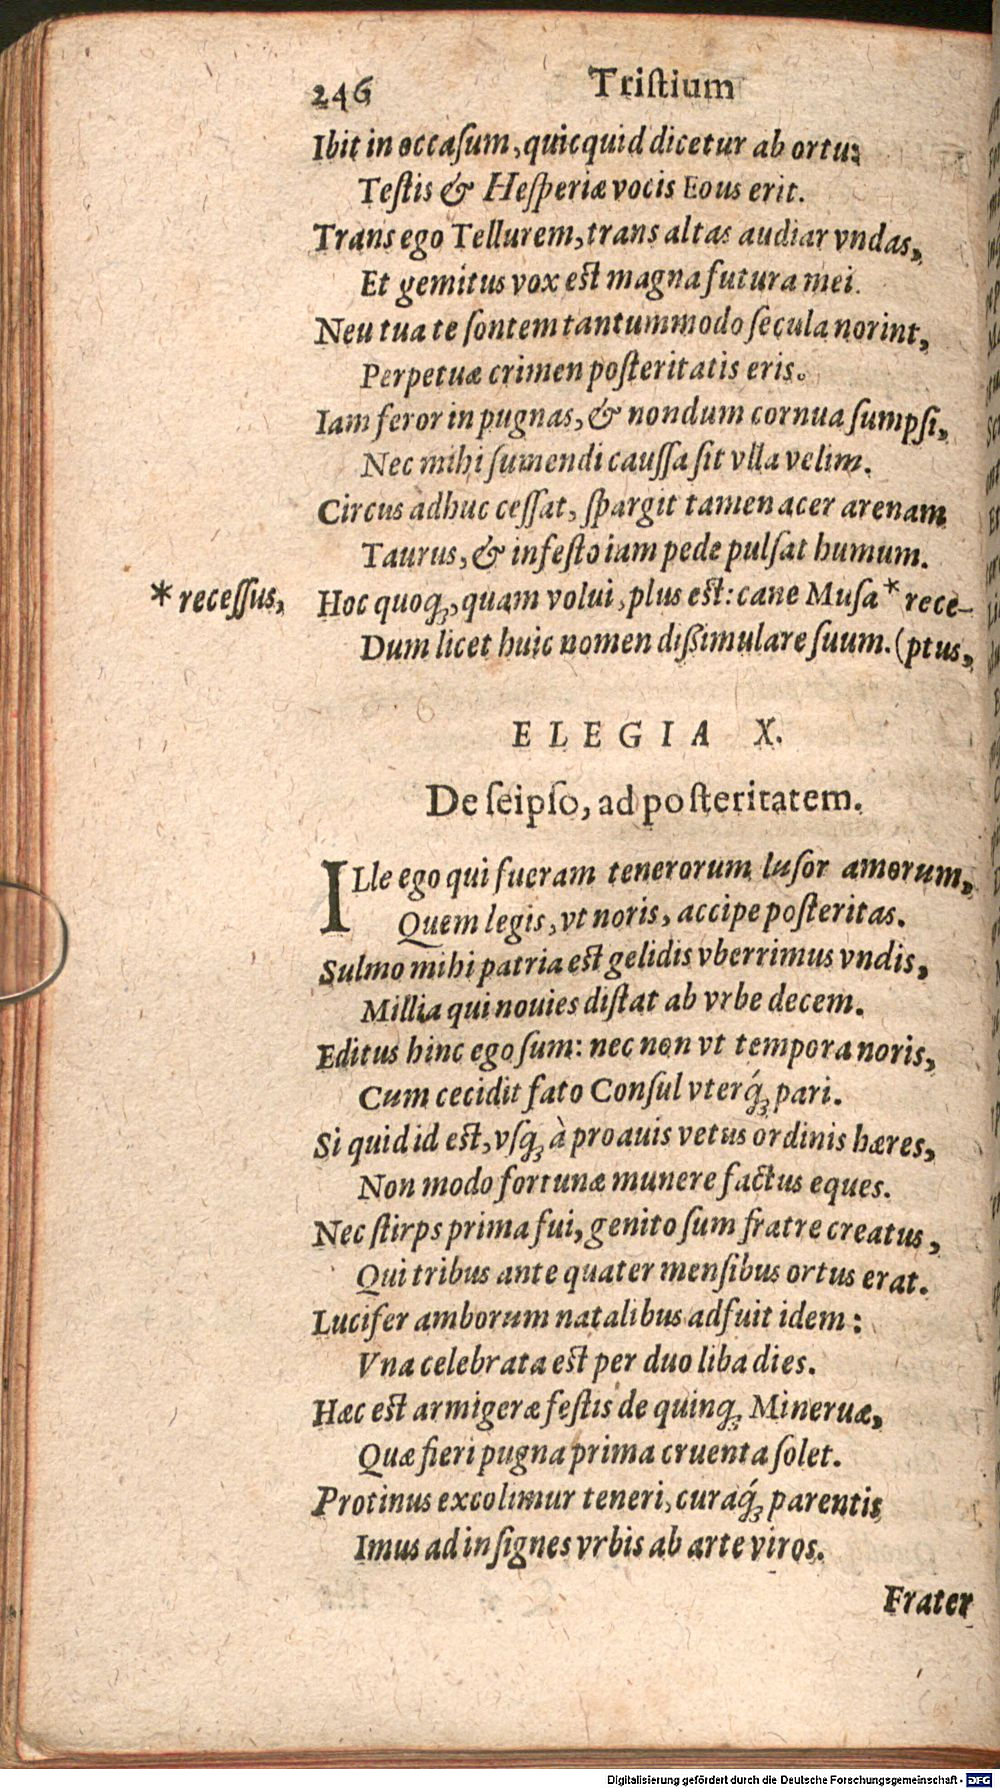 246 Triſtium
Ibit in occaſum, quicquid dicetur ab ortu:
Teſtis & Heſperiæ vocis Eous erit.
Trans ego Tellurem, trans altas audiar vndas,
Et gemitus vox eſt magna futura mei.
Neu tua te ſontem tantummodo ſecula norint,
Perpetuæ crimen poſteritatis eris.
Iam feror in pugnas, & nondum cornua ſumpſi,
Nec mihi ſumendi cauſſa ſit vlla velim.
Circus adhuc ceſſat, ſpargit tamen acer arenam
Taurus, & infeſto iam pede pulſat humum.
* receſſus, Hoc quoq́ꝫ, quam volui, plus eſt: cane Muſa * rece-
Dum licet huic nomen dißimulare ſuum. (ptus,
ELEGIA X.
De ſeipſo, ad poſteritatem.
ILle ego qui fueram tenerorum luſor amorum,
Quem legis, vt noris, accipe poſteritas.
Sulmo mihi patria eſt gelidis vberrimus vndis,
Millia qui nouies diſtat ab vrbe decem.
Editus hinc ego ſum: nec non vt tempora noris,
Cum cecidit fato Conſul vterq́ꝫ pari.
Si quid id eſt, vſqꝫ à proauis vetus ordinis hæres,
Non modo fortunæ munere factus eques.
Nec ſtirps prima fui, genito ſum fratre creatus,
Qui tribus ante quater menſibus ortus erat.
Lucifer amborum natalibus adfuit idem:
Vna celebrata eſt per duo liba dies.
Hæc eſt armigeræ feſtis de quinqꝫ Mineruæ,
Quæ fieri pugna prima cruenta ſolet.
Protinus excolimur teneri, curaq́ꝫ parentis
Imus ad inſignes vrbis ab arte viros.
Frater
Digitalisierung gefördert durch die Deutsche Forschungsgemeinschaft - DFG